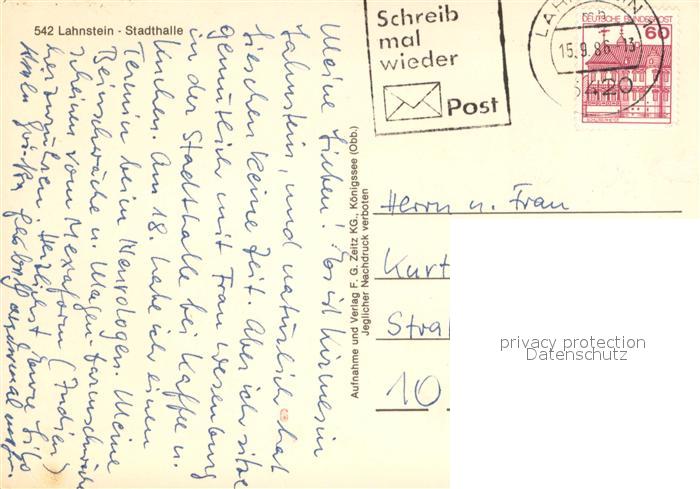 542 Lahnstein - Stadthalle
Meine Lieben! Es ist Kirmes in
Lahnstein, und natürlich hat
Lieschen keine Zeit. Aber ich sitze
gemütlich mit Frau Wesenburg
in der Stadthalle bei Kaffee u.
Kuchen. Am 18. habe ich einen
Termin beim Neurologen. Meine
Beinschwäche u. Magen-Darmschwäche
scheinen vom Mexaform (Indien)
herzurühren. Herzlichst Eure
Aufnahme und Verlag F. G. Zeitz KG., Königssee (Obb.)
Jeglicher Nachdruck verboten
Schreib
mal
wieder
Post
LAHNSTEIN 1
15.9.86-13
5420
DEUTSCHE BUNDESPOST
60
Herrn u. Frau
Kurt
Straß
10
privacy protection
Datenschutz